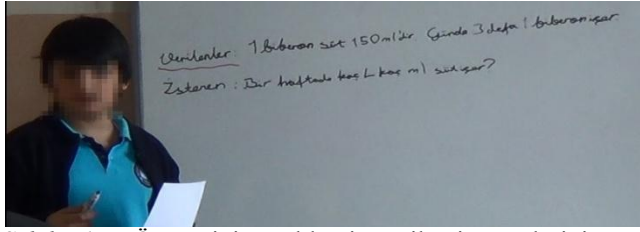 Verilenler: 1 biberon süt 150 ml'dir. Günde 3 defa 1 biberon içer.
İstenen: Bir haftada kaç L kaç ml süt içer?